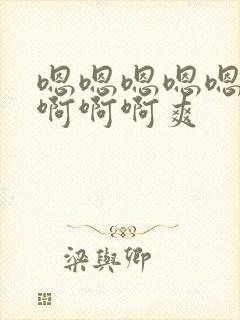 嗯嗯嗯嗯嗯
啊啊啊爽
梁与卿